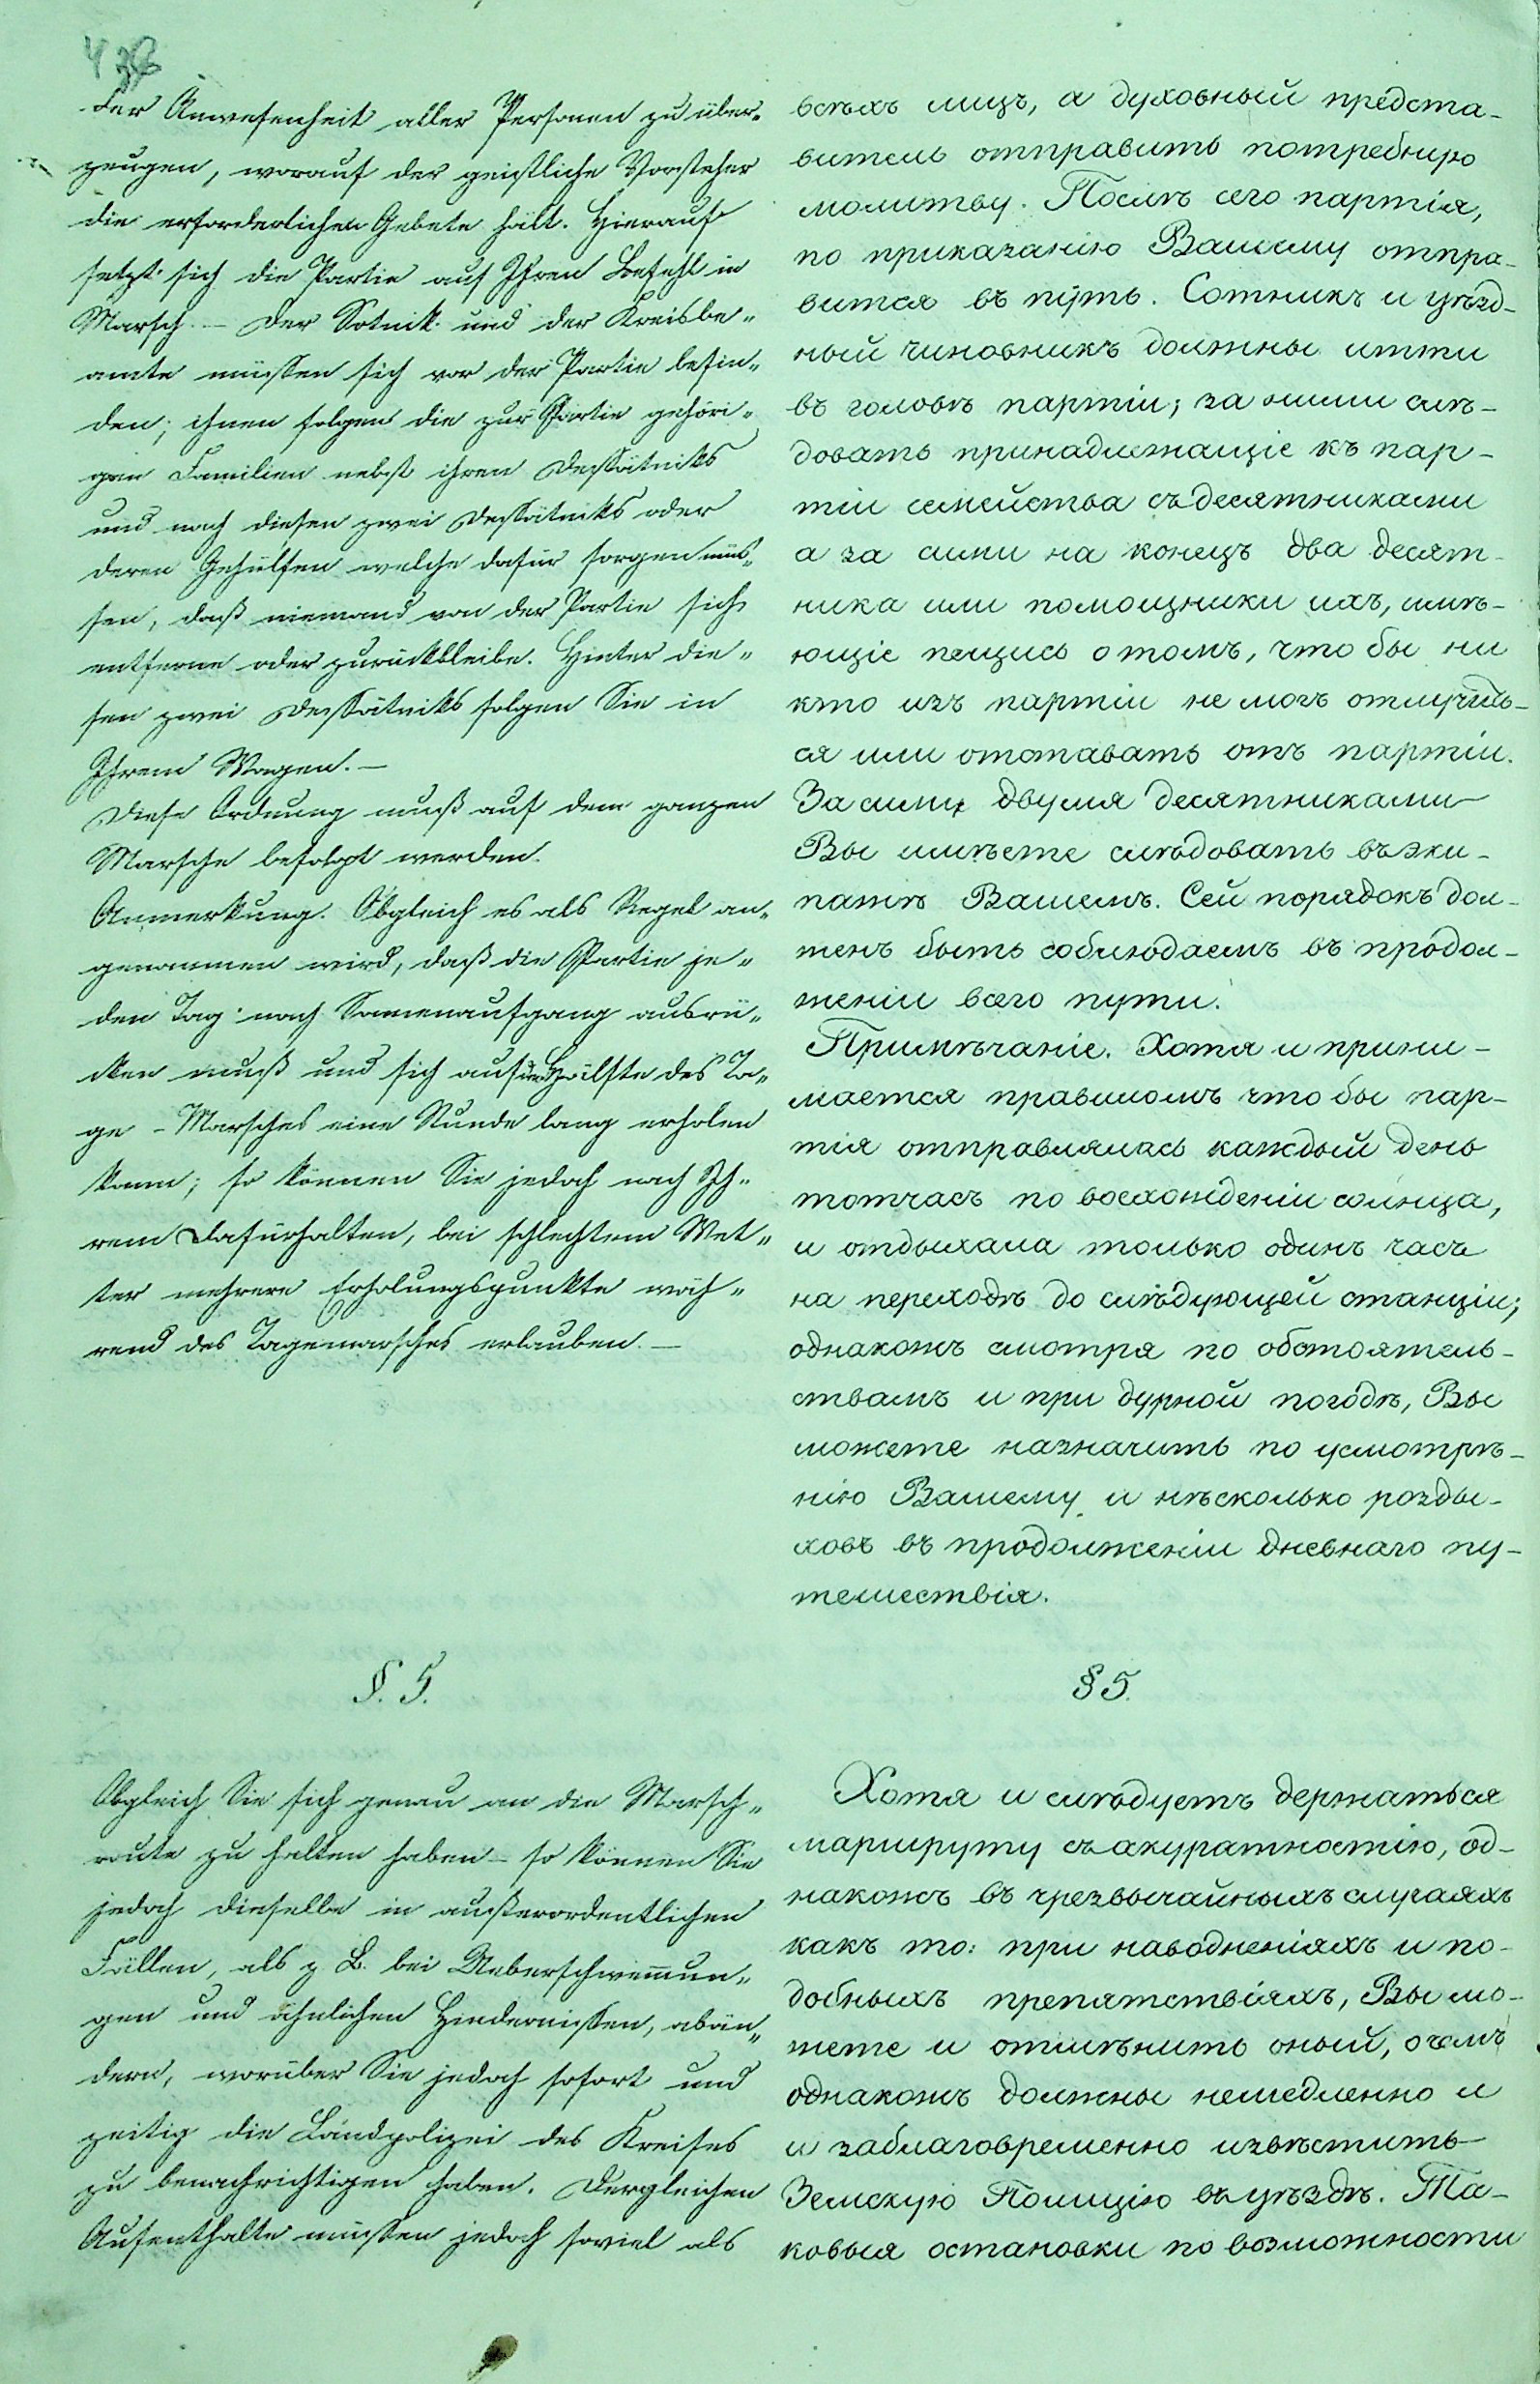 der Anwesenheit aller Personen zu über„
zeugen, worauf der geistliche Vorsteher
die erforderlichen Gebete hält. Hierauf
setzt sich die Partie auf Ihren Befehl in
Marsch. — Der Sotnik und der Kreisbe„
amte müssen sich vor der Partie befin„
den; ihnen folgen die zur Partie gehöri„
gen Familien nebst ihren Dessätniks
und nach diesen zwei Dessätniks oder
deren Gehülfen welche dafür sorgen müs„
sen, daß niemand von der Partie sich
entferne oder zurückbleibe. Hinter die„
sen zwei Dessätniks folgen Sie in
Ihrem Wagen. —
Diese Ordnung muß auf dem ganzen
Marsche befolgt werden.
Anmerkung. Obgleich es als Regel an„
genommen wird, daß die Partie je„
den Tag nach Sonnenaufgang ausrü„
cken muß und sich auf der Hälfte des Ta„
ge-Marsches eine Stunde lang erholen
kann; so können Sie jedoch nach Ih„
rem Dafürhalten, bei schlechtem Wet„
ter mehrere Erholungspunkte wäh„
rend des Tagemarsches erlauben. —
§. 5.
Obgleich Sie sich genau an die Marsch„
route zu halten haben — so können Sie
jedoch dieselbe in außerordentlichen
Fällen, als z. B. bei Ueberschwem̄un„
gen und ähnlichen Hindernissen, abän„
dern, worüber Sie jedoch sofort und
zeitig die Landpolizei des Kreises
zu benachrichtigen haben. Dergleichen
Aufenthalte müssen jedoch soviel als
всѣхъ лицъ, а духовный предста-
витель отправить потребную
молитву. Послѣ сего партія,
по приказанію Вашему отпра-
вится въ путь. Сотникъ и уѣзд-
ный чиновникъ должны итти
въ головѣ партіи; за ними слѣ-
довать принадлежащіе къ пар-
тіи семейства съ десятниками
а за сими на конецъ два десят-
ника или помощники ихъ, имѣ-
ющіе пещись о томъ, что бы ни
кто изъ партіи не могъ отлучить-
ся или отставать отъ партіи.
За сими двумя десятниками
Вы имѣете слѣдовать въ эки-
пажѣ Вашемъ. Сей порядокъ дол-
женъ быть соблюдаемъ въ продол-
женіи всего пути.
Примѣчаніе. Хотя и прини-
мается правиломъ что бы пар-
тія отправлялась каждый день
тотчасъ по восхожденіи солнца,
и отдыхала только одинъ часъ
на переходѣ до слѣдующей станціи;
однакожъ смотря по обстоятель-
ствамъ и при дурной погодѣ, Вы
можете назначить по усмотрѣ-
нію Вашему и нѣсколько розды-
ховъ въ продолженіи дневнаго пу-
тешествія.
§ 5.
Хотя и слѣдуетъ держаться
маршруту съ акуратностію, од-
накожъ въ чрезвычайныхъ случаяхъ
какъ то: при наводненіяхъ и по-
добныхъ препятствіяхъ, Вы мо-
жете и отмѣнить оный, о чемъ
однакожъ должны немедленно и
и заблаговременно извѣстить
Земскую Полицію въ уѣздѣ. Та-
ковыя остановки по возможности